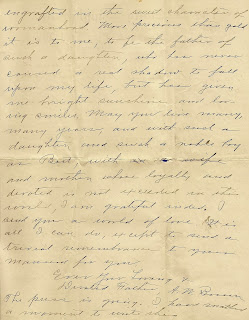 engrafted in the sweet character of
womanhood. More precious than gold
it is to me, to be the father of
such a daughter, who has never
caused a real shadow to fall
upon my life, but has given
me bright sunshine and lov-
ing smiles. May you live many,
many years, and with such a
daughter, and such a noble boy
as Bert, with a wife
and mother whose loyalty and
devotion is not exceeded in the
world, I am grateful indeed. I
send you a world of love. It is
all I can do, except to send a
trivial remembrance to your
Mamma for you.
Ever Your Loving &
Devoted Father, A. W.
The year is going. I have
a moment to write this